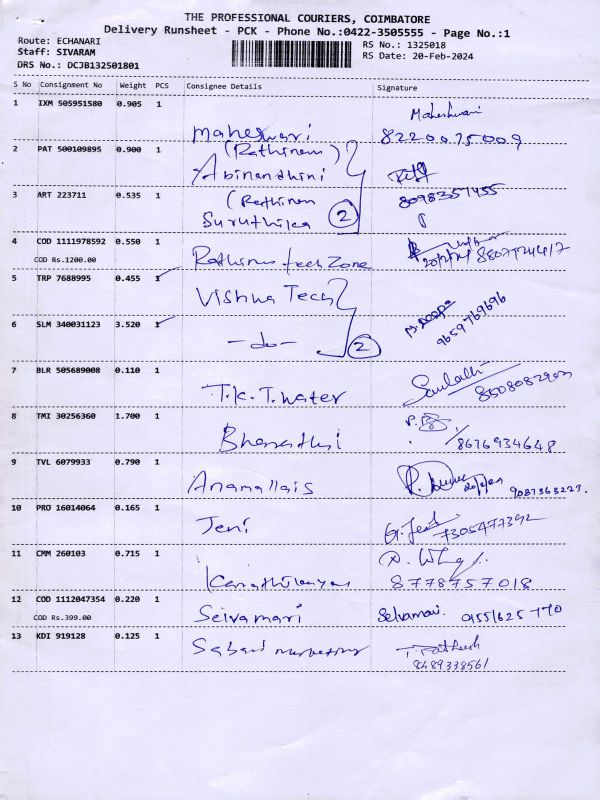 THE PROFESSIONAL COURIERS, COIMBATORE
Delivery Runsheet - PCK - Phone No.:0422-3505555 - Page No.:1
Route: ECHANARI
Staff: SIVARAM
DRS No.: DCJB132501801
RS No.: 1325018
RS Date: 20-Feb-2024
S No Consignment No Weight PCS Consignee Details Signature
1 IXM 505951580 0.905 1 Maheswari Maheshwari
8220075009
2 PAT 500109895 0.900 1 (Rathinam)
Abinandhini
3 ART 223711 0.535 1 (Rathinam 8098357455
Suruthika 2
4 COD 1111978592 0.550 1
COD Rs.1200.00 Rathinam tech Zone
5 TRP 7688995 0.455 1 Vishna Tech
9659769696
6 SLM 340031123 3.520 1 -do- 2
7 BLR 505689008 0.110 1 T.K.T. Nater
8 TMI 30256360 1.700 1 Bharathi 8676934648
9 TVL 6079933 0.790 1 Anamallais 9087363223
10 PRO 16014064 0.165 1 Jeni 7305477392
11 CMM 260103 0.715 1
8778757018
12 COD 1112047354 0.220 1 Selvamari Selvamari. 9155/625 770
COD Rs.399.00
13 KDI 919128 0.125 1 Sabari
8489338561